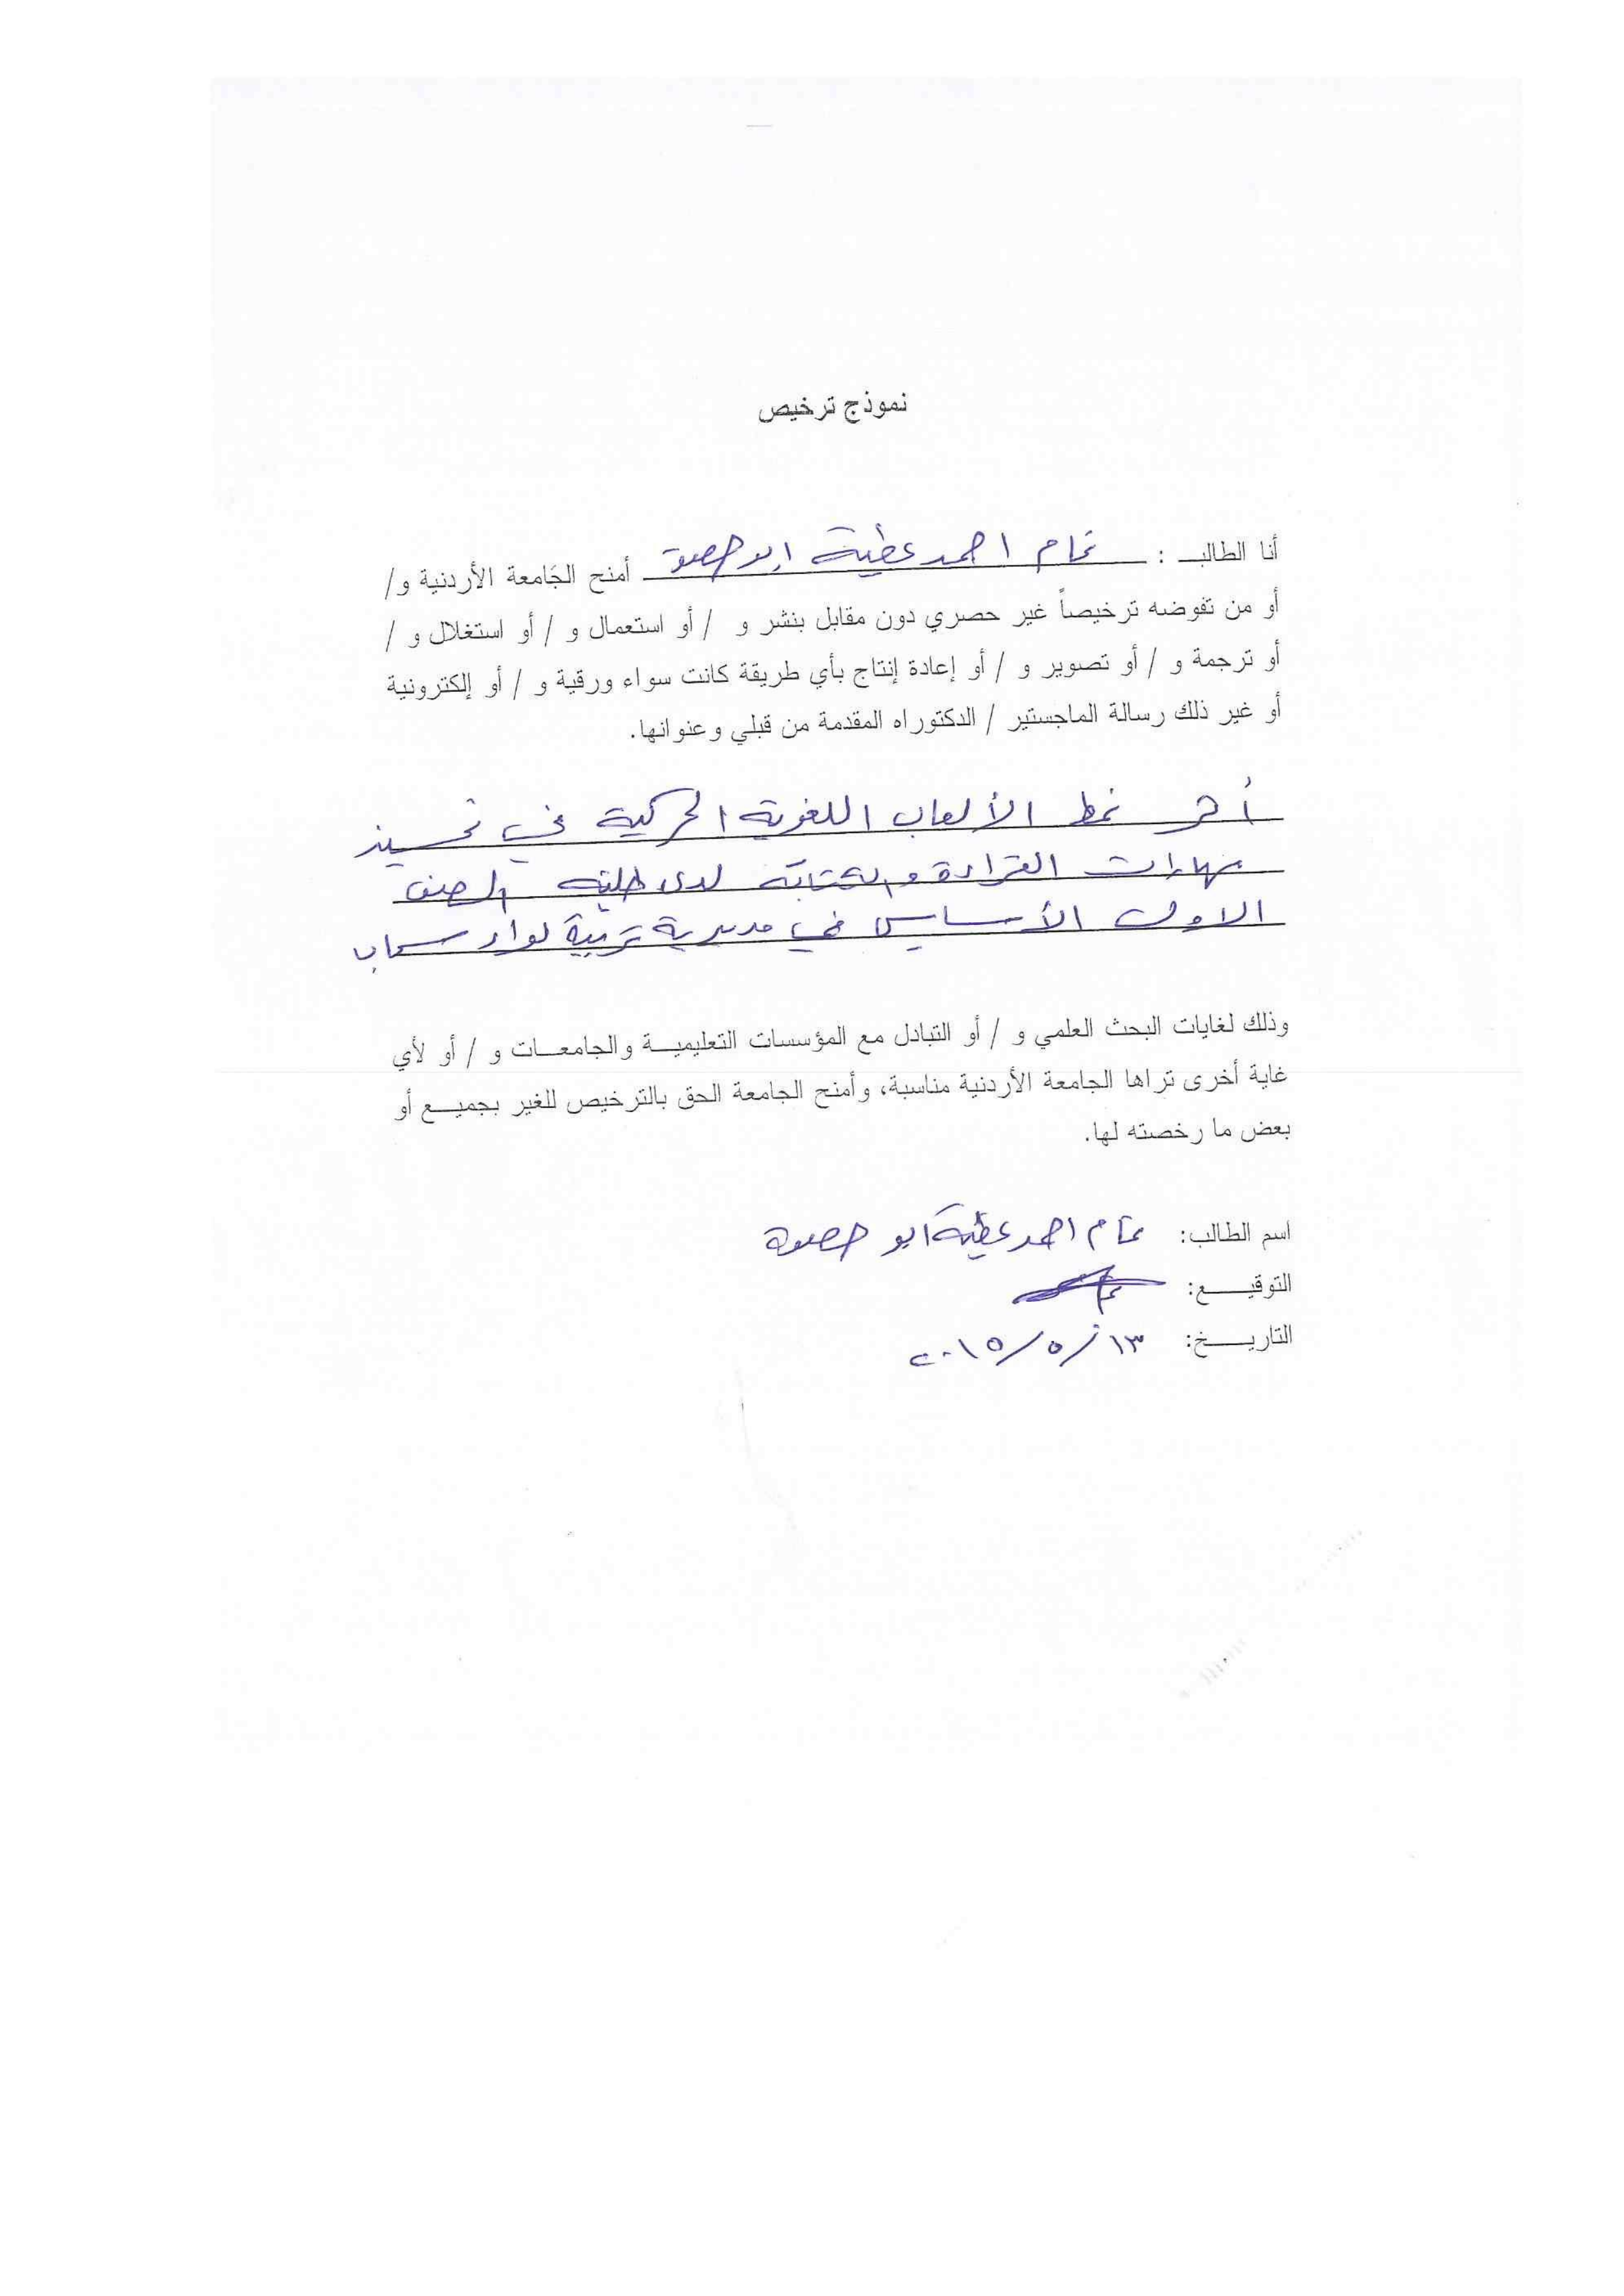 نموذج ترخيص
أنا الطالب : تمام احمد عطية ابو أمنح الجامعة الأردنية و/
أو من تفوضه ترخيصاً غير حصري دون مقابل بنشر و / أو استعمال و / أو استغلال و /
أو ترجمة و / أو تصوير و / أو إعادة إنتاج بأي طريقة كانت سواء ورقية و / أو إلكترونية
أو غير ذلك رسالة الماجستير / الدكتوراه المقدمة من قبلي وعنوانها.
أثر نمط الألعاب اللغوية الحركية في تحسين
مهارات القراءة والكتابة لدى طلبة الصف
الاول الأساسي في مديرية تربية لواء سحاب
وذلك لغايات البحث العلمي و / أو التبادل مع المؤسسات التعليمية والجامعات و / أو لأي
غاية أخرى تراها الجامعة الأردنية مناسبة، وأمنح الجامعة الحق بالترخيص للغير بجميع أو
بعض ما رخصته لها.
اسم الطالب: تمام احمد عطية ابو
التوقيع:
التاريخ: ١٣/ ٥/ ٢٠١٥